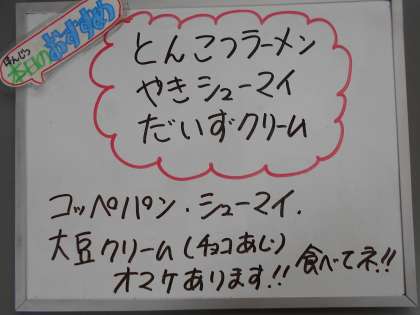 ほんじつ
本日のおすすめ
とんこつラーメン
やきシューマイ
だいずクリーム
コッペパン・シューマイ.
大豆クリーム(チョコあじ)
オマケあります!! 食べてネ!!